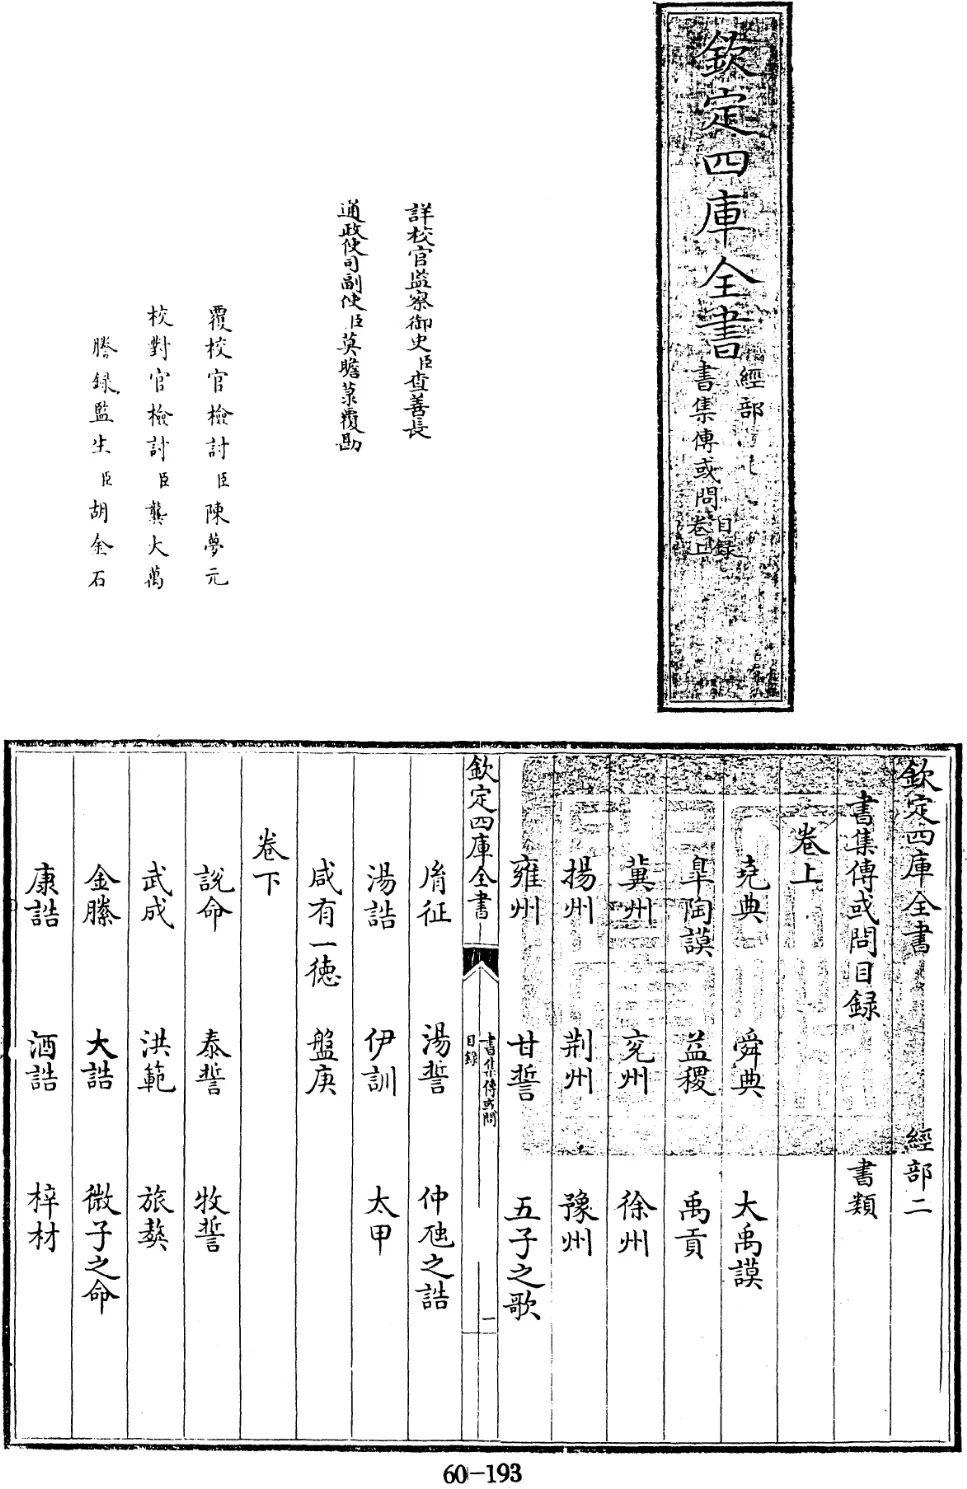 欽定四庫全書
經部
書集傳或問 目録 卷上
詳校官監察御史臣查善長
通政使司副使臣莫瞻菉覆勘
覆校官檢討臣陳夢元
校對官檢討臣龔大萬
謄録監生臣胡金石
欽定四庫全書 經部二
書集傳或問目録 書類
卷上
堯典 舜典 大禹謨
臯陶謨 益稷 禹貢
冀州 兖州 徐州
揚州 荆州 豫州
雍州 甘誓 五子之歌
欽定四庫全書 書集傳或問 目録 一
胤征 湯誓 仲虺之誥
湯誥 伊訓 太甲
咸有一德 盤庚
卷下
說命 泰誓 牧誓
武成 洪範 旅獒
金縢 大誥 微子之命
康誥 酒誥 梓材
60-193